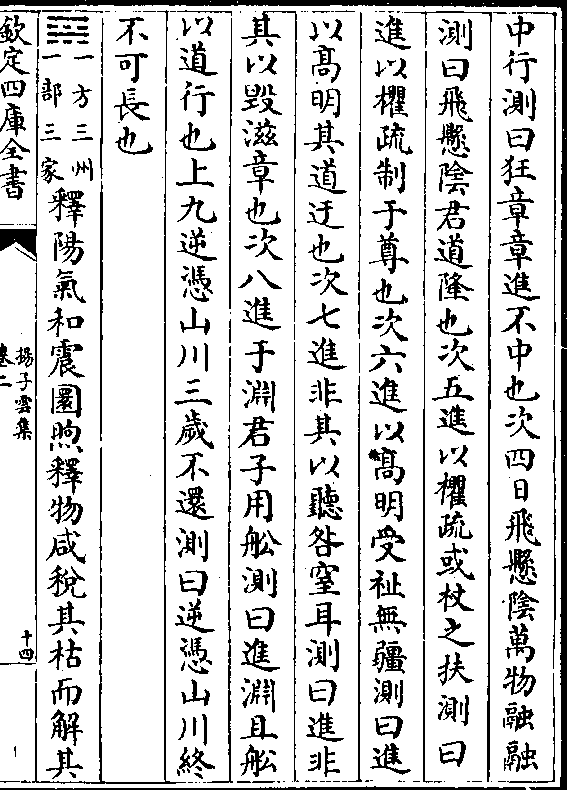 中行測曰狂章章進不中也次四日飛懸陰萬物融融
測曰飛懸陰君道隆也次五進以欋疏或杖之扶測曰
進以欋疏制于尊也次六進以高明受祉無疆測曰進
以高明其道迂也次七進非其以聽咎窒耳測曰進非
其以毀滋章也次八進于淵君子用船測曰進淵且船
以道行也上九逆憑山川三歲不還測曰逆憑山川終
不可長也
一方三州
一部三家
釋陽氣和震圜煦釋物咸稅其枯而解其
欽定四庫全書
揚子雲集
卷二
十四